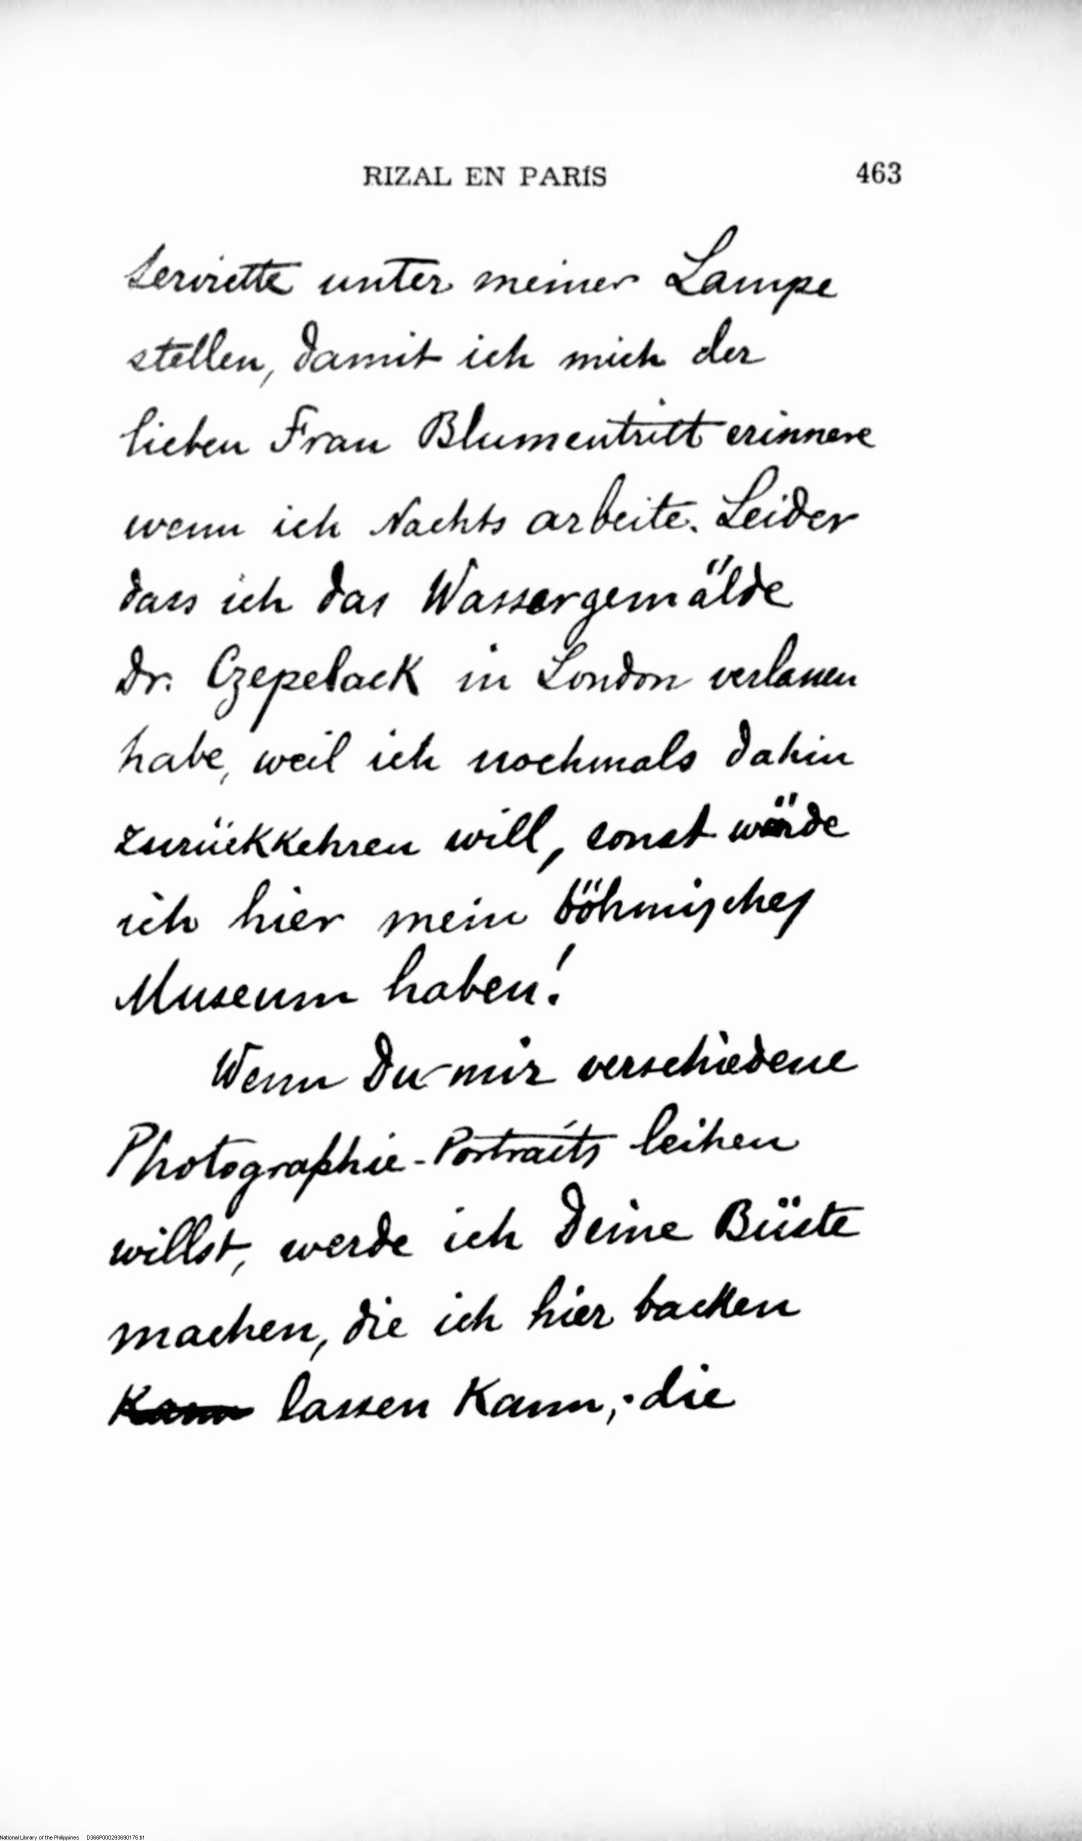 RIZAL EN PARÍS 463
Serviette unter meiner Lampe
stellen, damit ich mich der
lieben Frau Blumentritt erinnere
wenn ich Nachts arbeite. Leider
dass ich das Wassergemälde
Dr. Czepelack in London verlassen
habe, weil ich nochmals dahin
zurückkehren will, sonst würde
ich hier mein böhmisches
Museum haben!
Wenn Du mir verschiedene
Photographie-Portraits leihen
willst, werde ich Deine Büste
machen, die ich hier backen
Kann lassen Kann, die
National Library of the Philippines